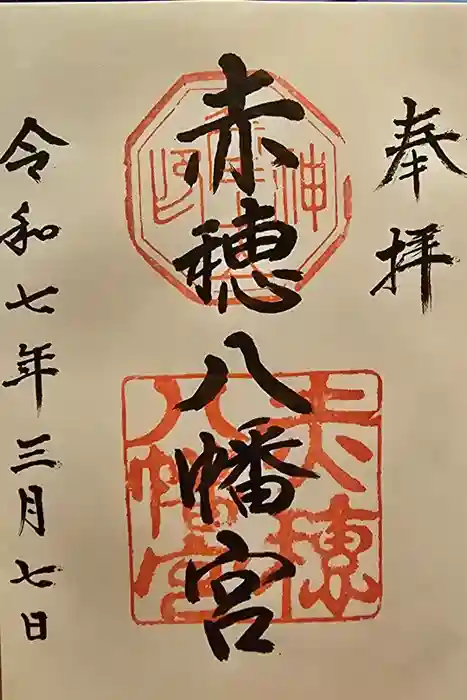 奉拝
赤穂八幡宮
令和七年三月七日
赤穂
八幡宮